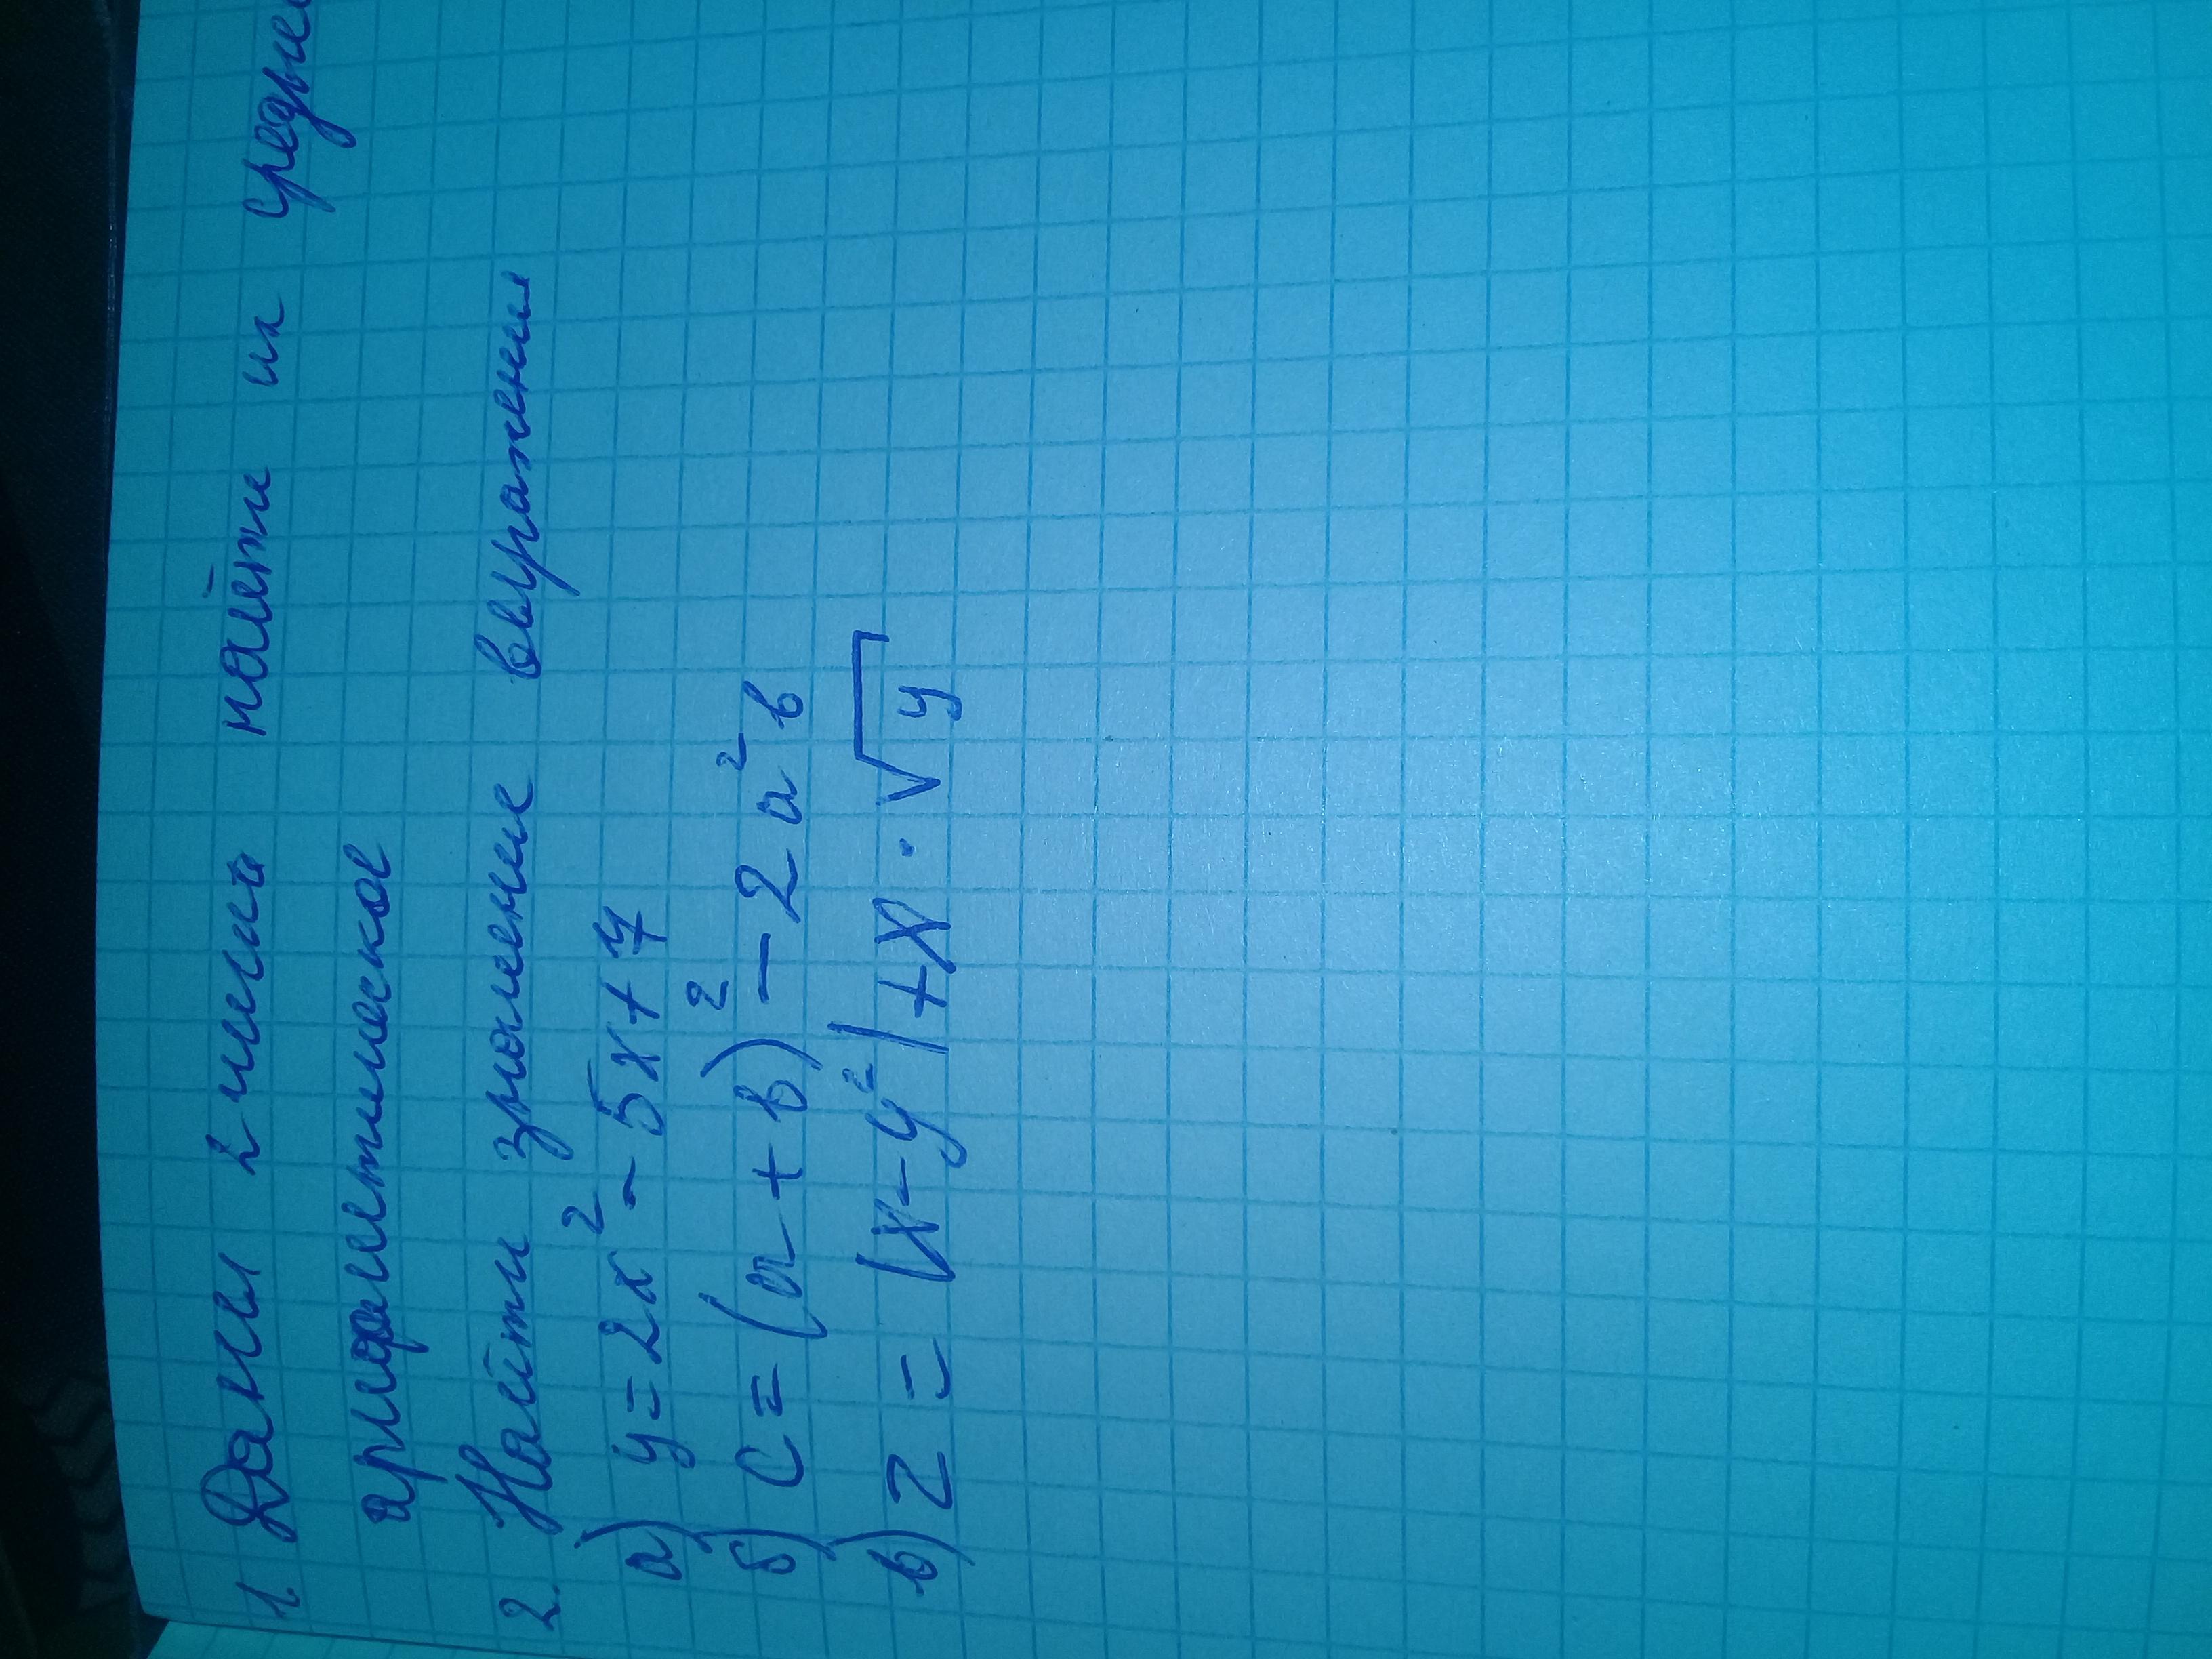 1. Даны 2 числа найти их средне
арифметическое
2. Найти значение выражения
а) y = 2x² - 5x + 7
б) c = (a + b)² - 2a²b
в) z = |x - y²| + x · √y